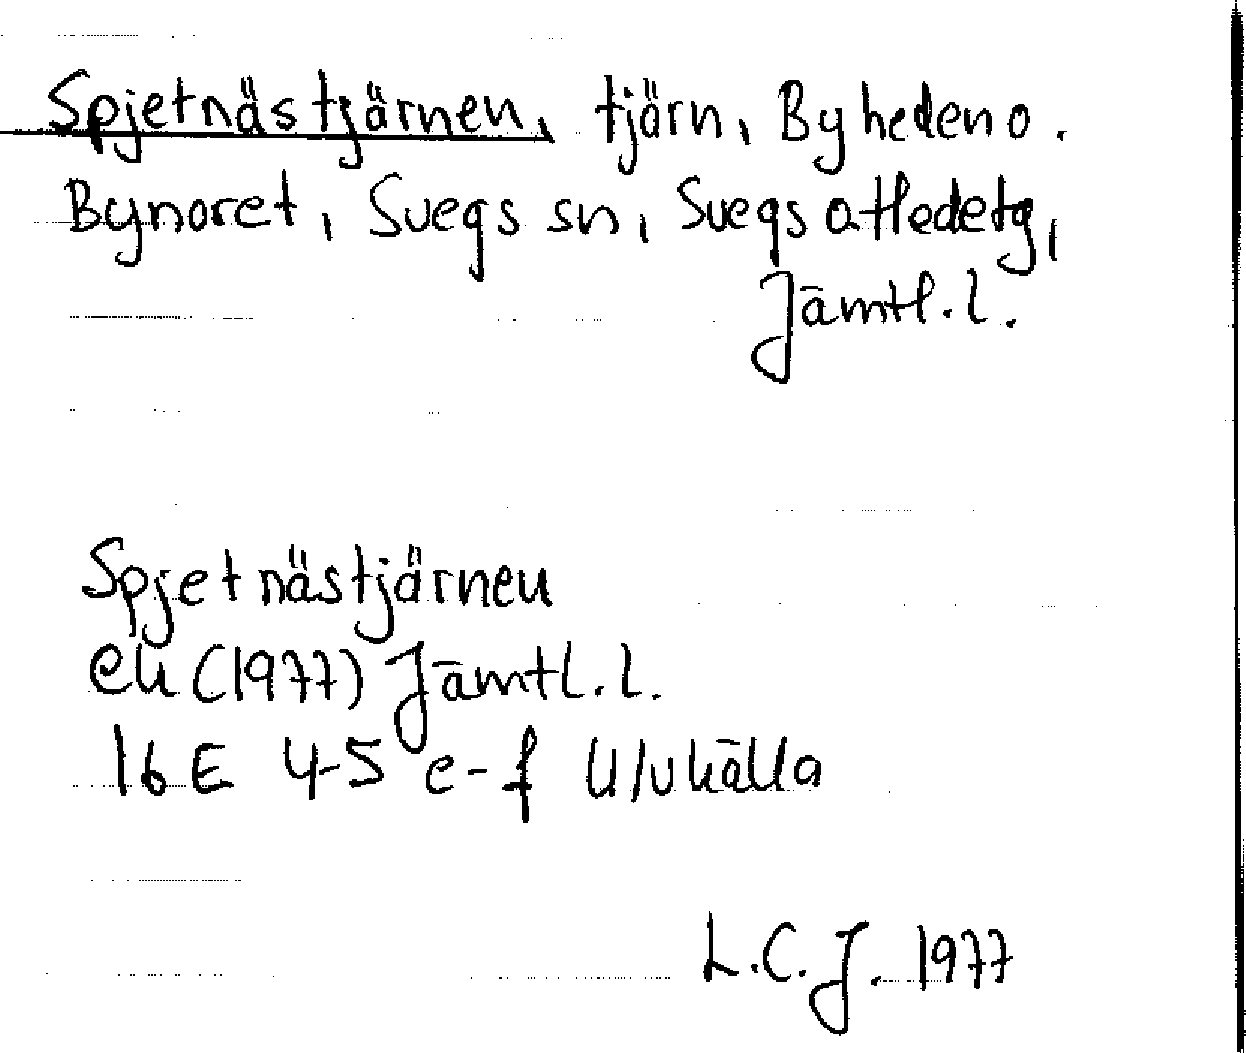 Spjetnästjärnen, tjärn, Byheden o.
Bynoret, Svegs sn, Svegs attledetg,
Jämtl. l.
Spjetnästjärnen
ek (1977) Jämtl. l.
16 E 4-5 e-f Ulvkälla
L.C.J. 1977